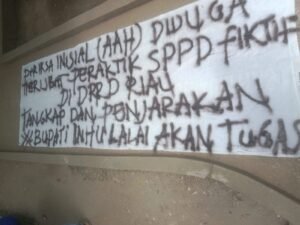 PERIKSA INISIAL (AAH) DIDUGA
TERLIBAT PERAKTIK SPPD FIKTIF
DI DPRD RIAU
TANGKAP DAN PENJARAKAN
BUPATI INHU LALAI AKAN TUGAS